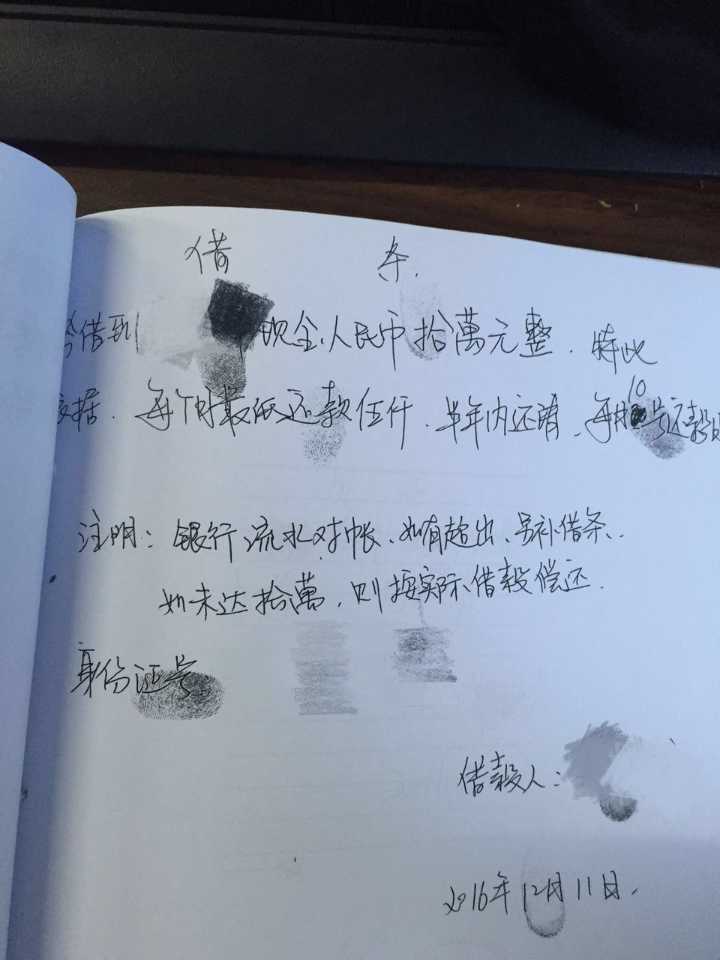 借 条.
今借到 现金.人民币拾萬元整.特此
据.每个月最低还款伍仟.半年内还清.每月10号还款
注明:银行流水对帐、如有超出、另补借条..
如未达拾萬.则按实际借款偿还.
身份证号
借款人:
2016年12月11日.